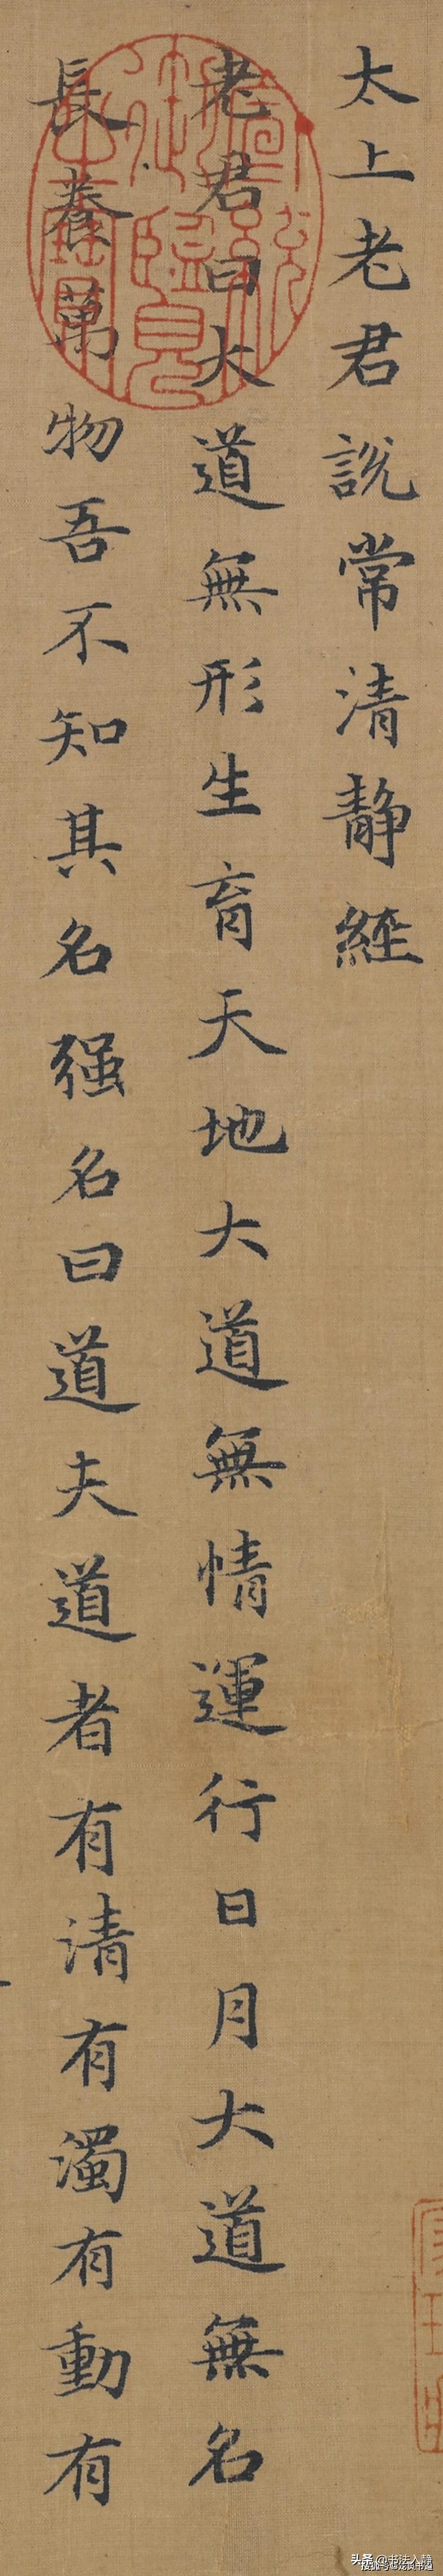 太上老君說常清靜經
老君曰大道無形生育天地大道無情運行日月大道無名
長養萬物吾不知其名强名曰道夫道者有清有濁有動有
头条 @书法入静